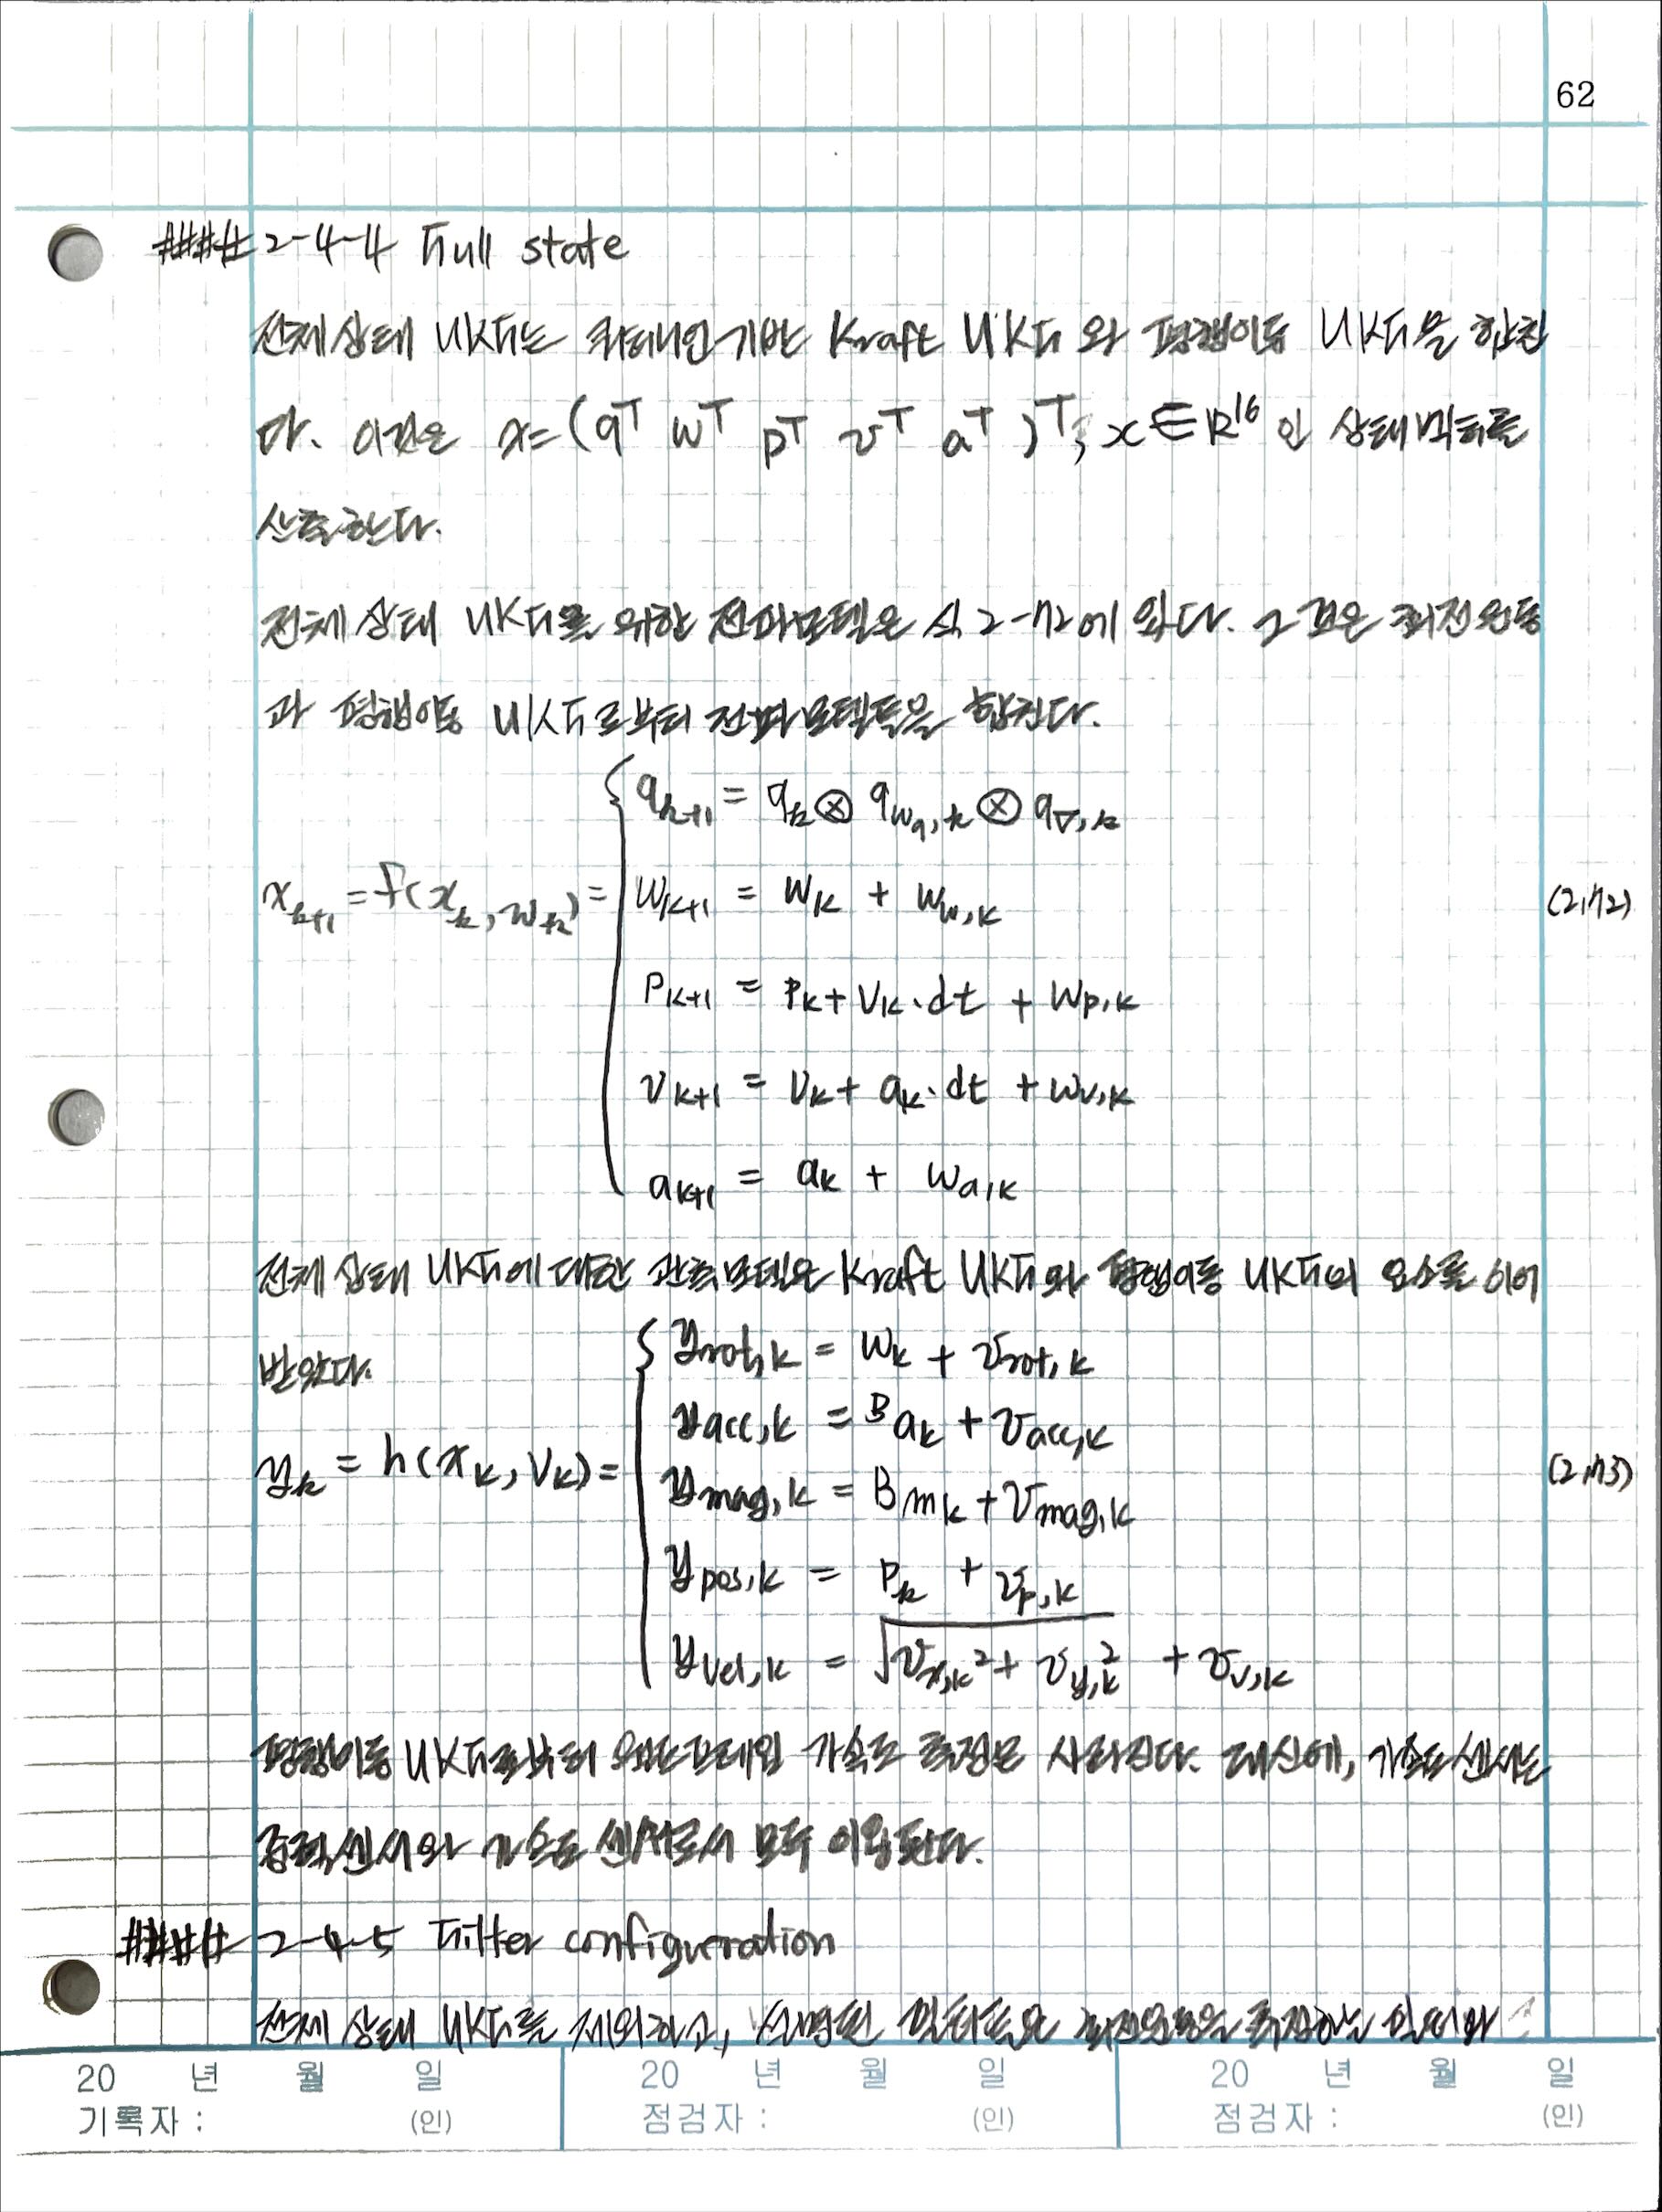 62
#### 2-4-4 Full state
전체상태 UKF는 쿼터니언기반 Kraft UKF와 평행이동 UKF를 합친
다. 이것은 x=(q^T w^T p^T v^T a^T)^T, x∈R^16 인 상태벡터를
산출한다.
전체 상태 UKF를 위한 전파모델은 식 2-72에 있다. 그것은 회전운동
과 평행이동 UKF로부터 전파모델들을 합친다.
x_{k+1} = f(x_k, w_k) = { q_{k+1} = q_k ⊗ q_{w_q,k} ⊗ q_{∇,k}
w_{k+1} = w_k + w_{w,k} (2.72)
p_{k+1} = p_k + v_k·dt + w_{p,k}
v_{k+1} = v_k + a_k·dt + w_{v,k}
a_{k+1} = a_k + w_{a,k}
전체 상태 UKF에 대한 관측모델은 Kraft UKF와 평행이동 UKF의 요소를 이어
받았다.
y_k = h(x_k, v_k) = { y_{rot,k} = w_k + v_{rot,k}
y_{acc,k} = ^B a_k + v_{acc,k}
y_{mag,k} = B m_k + v_{mag,k} (2.73)
y_{pos,k} = p_k + v_{p,k}
y_{vel,k} = √(v_{x,k}^2 + v_{y,k}^2) + v_{v,k}
평행이동 UKF로부터 가속도 측정은 사라진다. 대신에, 가속도센서는
중력센서와 가속도 센서로서 모두 이용된다.
#### 2-4-5 Filter configuration
전체 상태 UKF를 제외하고, 설명된 필터들은 회전운동을 측정하는 필터와
20 년 월 일 20 년 월 일 20 년 월 일
기록자 : (인) 점검자 : (인) 점검자 : (인)